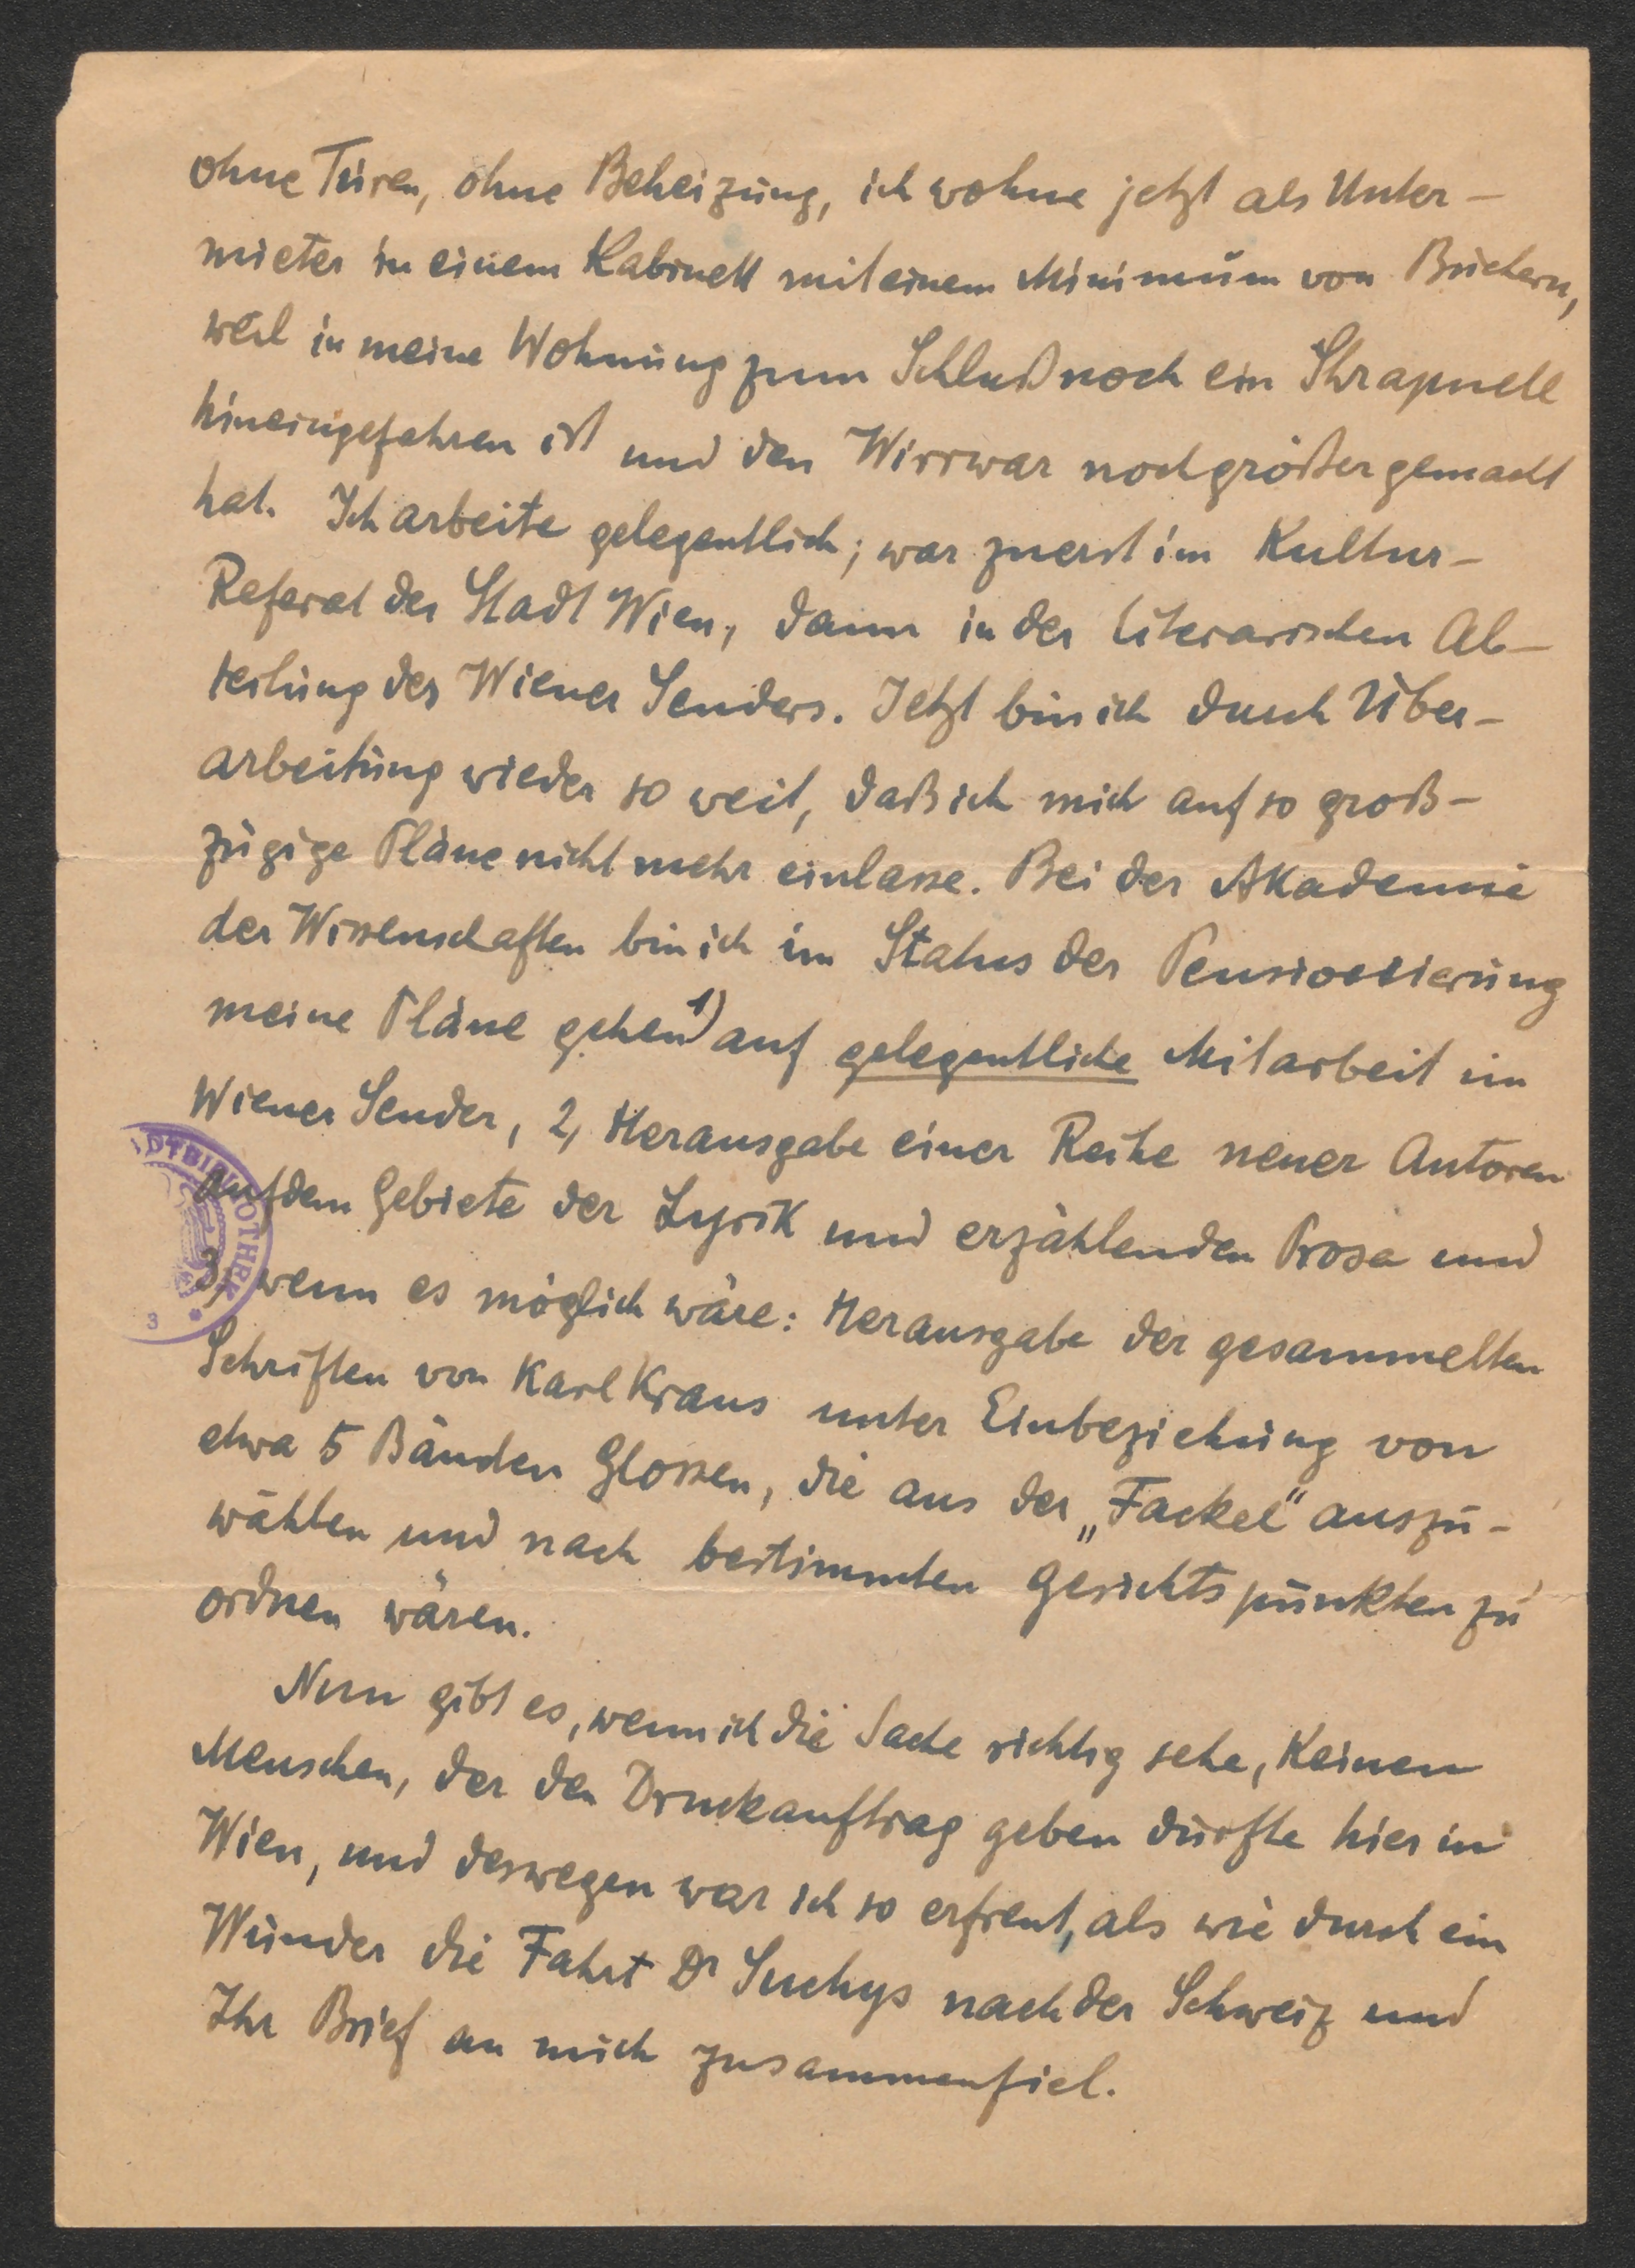 ohne Türen, ohne Beheizung, ich wohne jetzt als Unter-
mieter in einem Kabinett mit einem Minimum von Büchern,
weil in meine Wohnung zum Schluß noch ein Shrapnell
hineingefahren ist und den Wirrwar noch größer gemacht
hat. Ich arbeite gelegentlich; war zuerst im Kultur-
Referat der Stadt Wien, dann in der literarischen Ab-
teilung des Wiener Senders. Jetzt bin ich durch Über-
arbeitung wieder so weit, daß ich mich auf so groß-
zügige Pläne nicht mehr einlasse. Bei der Akademie
der Wissenschaften bin ich im Status der Pensionierung
meine Pläne gehen 1) auf gelegentliche Mitarbeit im
Wiener Sender, 2, Herausgabe einer Reihe neuer Autoren
auf dem Gebiete der Lyrik und erzählenden Prosa und
3, wenn es möglich wäre: Herausgabe der gesammelten
Schriften von Karl Kraus unter Einbeziehung von
etwa 5 Bänden Glossen, die aus der „Fackel" auszu-
wählen und nach bestimmten Gesichtspunkten zu
ordnen wären.
Nun gibt es, wenn ich die Sache richtig sehe, keinen
Menschen, der den Druckauftrag geben dürfte hier in
Wien, und deswegen war ich so erfreut, als wie durch ein
Wunder die Fahrt Dr Suchys nach der Schweiz und
Ihr Brief an mich zusammenfiel.
DTBIBLIOTHEK
3